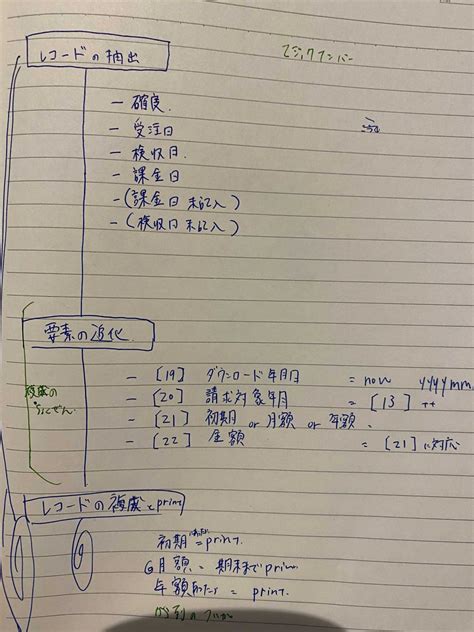 レコードの抽出
マジックナンバー
- 確度.
- 受注日
- 検収日.
- 課金日
- (課金日 未記入)
- (検収日 未記入)
要素の追加
- [19] ダウンロード年月日 = now yyyymm.
- [20] 請求対象年月 = [13] ++
- [21] 初期 or 月額 or 年額.
- [22] 金額 = [21]に対応
レコードの複成とprint
初期 = print.
月額 = 期末までprin
年額 = print.